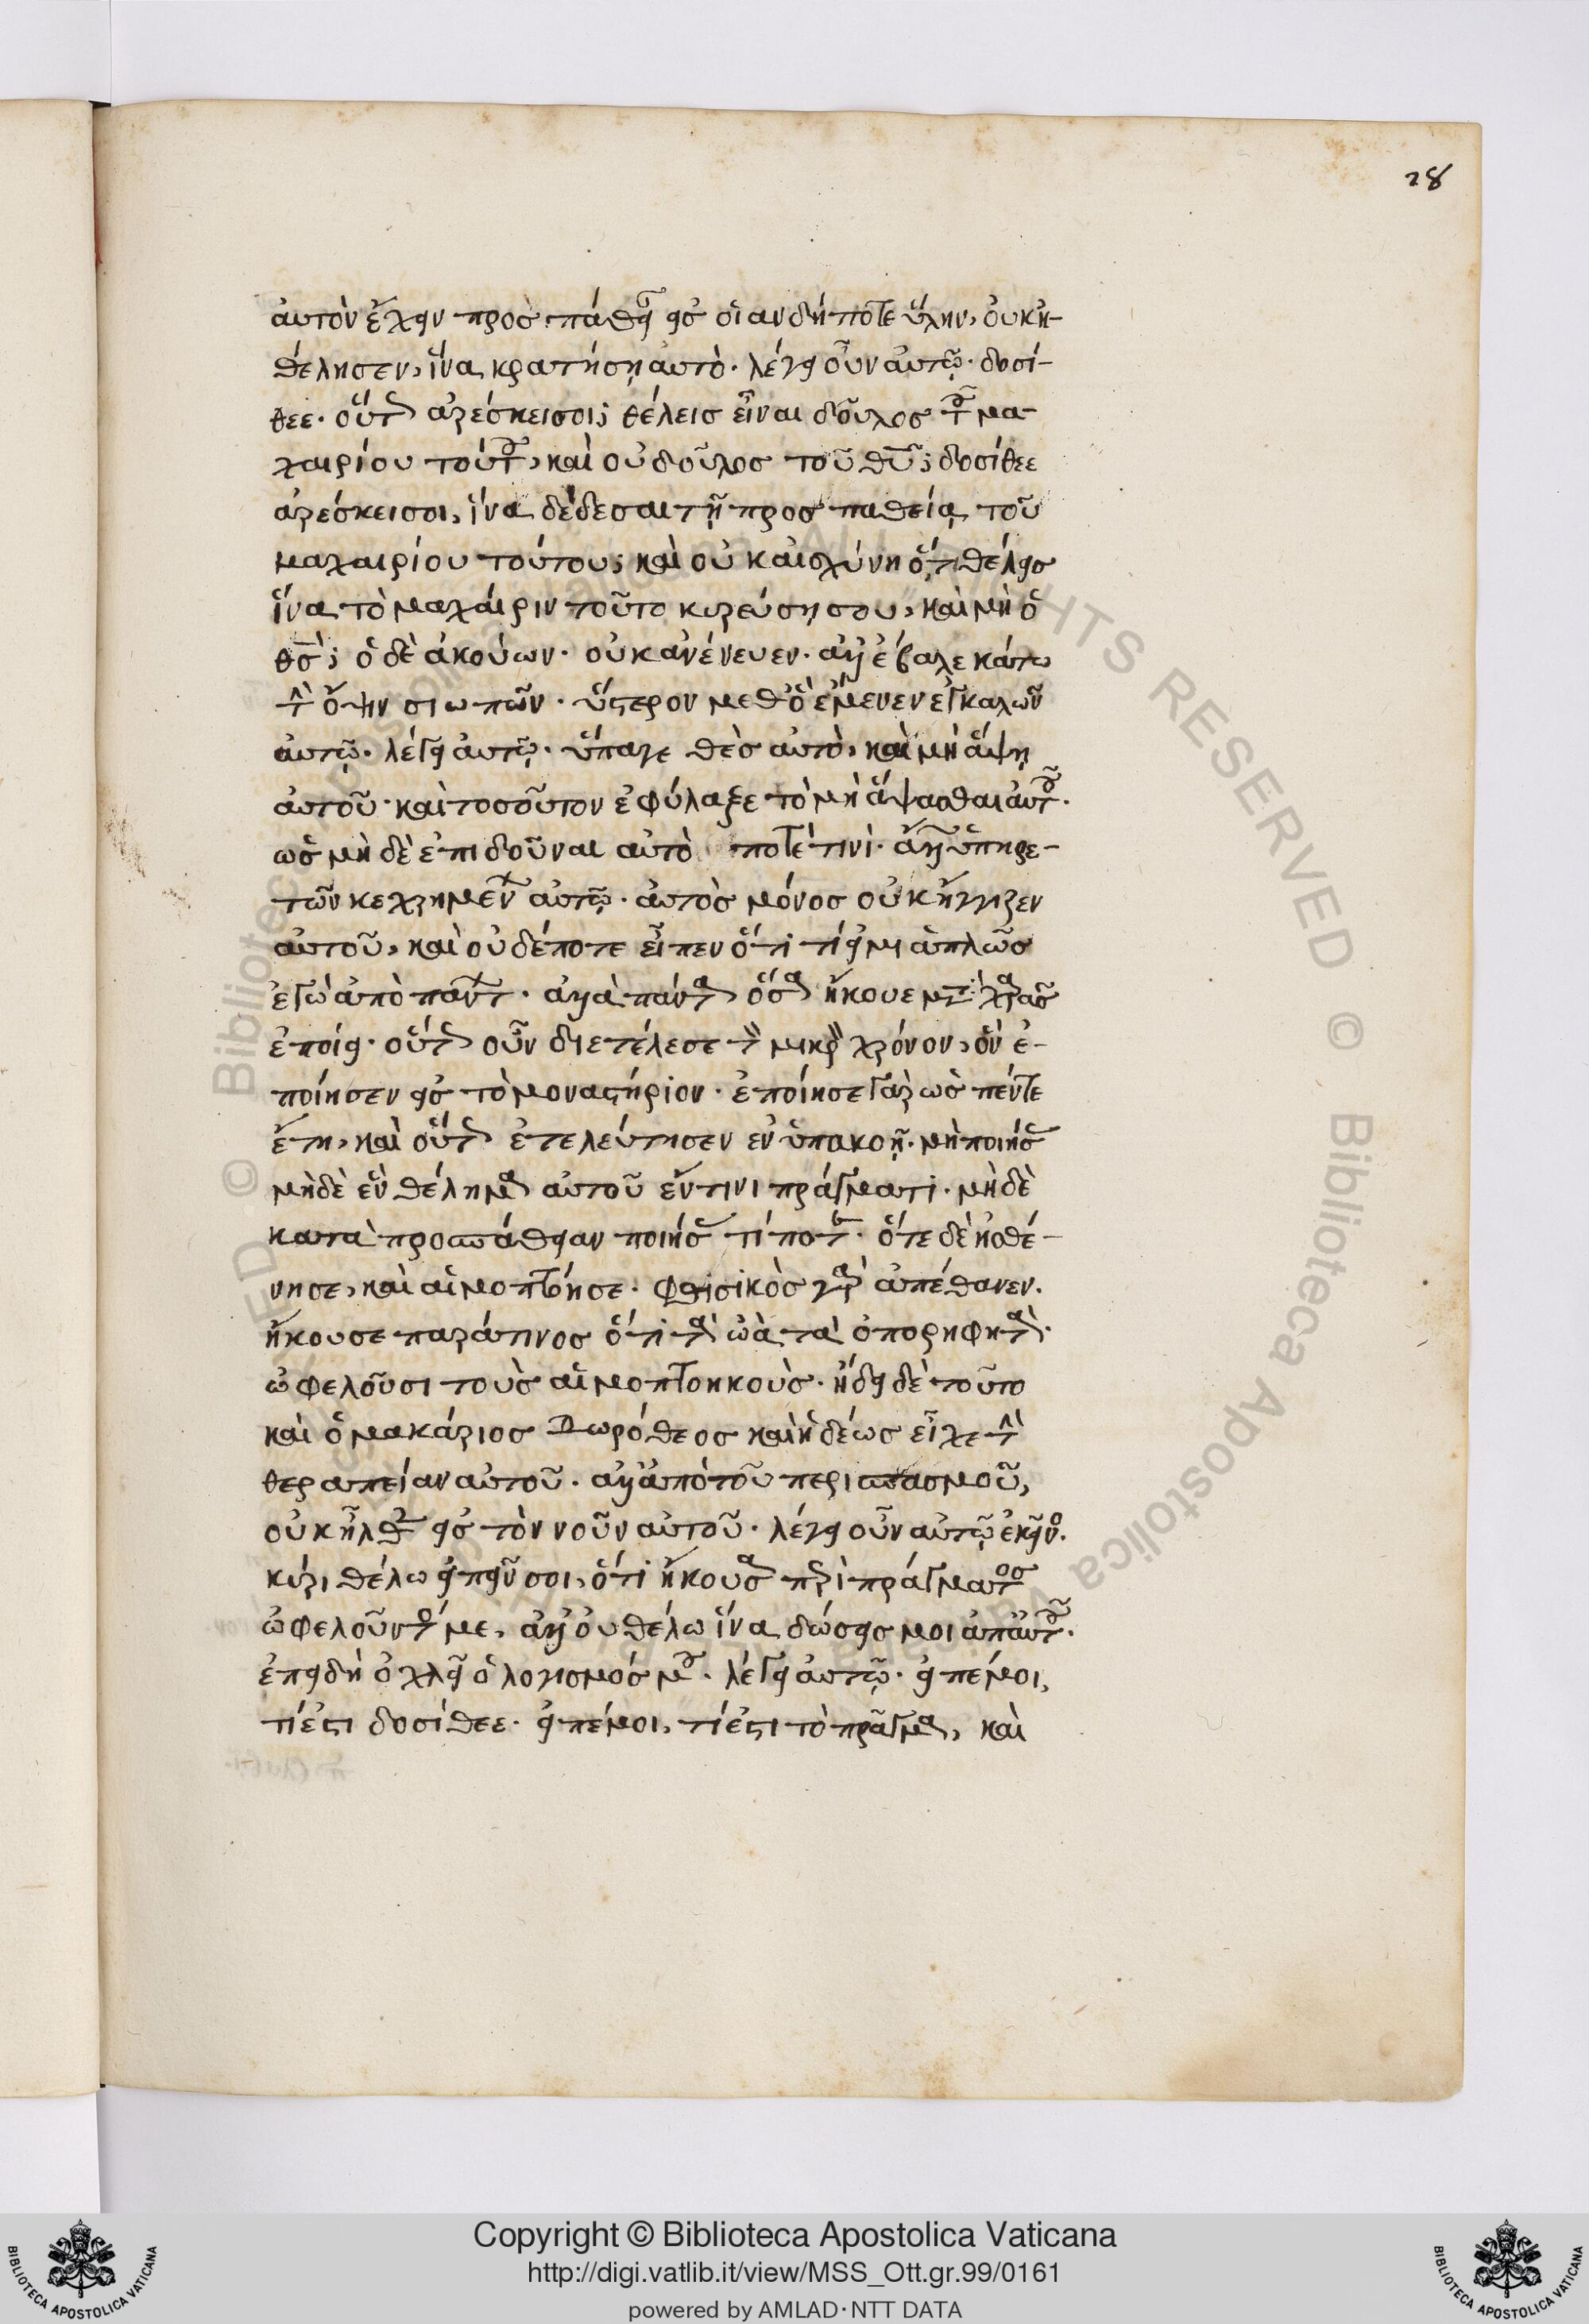 28
αὐτὸν ἔχειν προσπάθειαν εἰς οἱανδήποτε ὕλην, οὐκ ἠ-
θέλησεν, ἵνα κρατήσῃ αὐτό. λέγει οὖν αὐτῷ. δοσί-
θεε. οὕτως ἀρέσκει σοι; θέλεις εἶναι δοῦλος τοῦ μα-
χαιρίου τούτου, καὶ οὐ δοῦλος τοῦ θῦ; δοσίθεε
ἀρέσκει σοι, ἵνα δέδεσαι τῇ προσπαθείᾳ τοῦ
μαχαιρίου τούτου; καὶ οὐκ αἰσχύνῃ ὅτι θέλεις
ἵνα τὸ μαχαίριν τοῦτο κυριεύσῃ σου, καὶ μὴ ὁ
θς; ὁ δὲ ἀκούων. οὐκ ἀνένευεν. ἀλλ' ἔβαλε κάτω
τὴν ὄψιν σιωπῶν. ὕστερον μεθ' ὃ ἔμενεν ἐγκαλῶν
αὐτῷ. λέγει αὐτῷ. ὕπαγε θὲς αὐτὸ, καὶ μὴ ἅψῃ
αὐτοῦ. καὶ τοσοῦτον ἐφύλαξε τὸ μὴ ἅψασθαι αὐτοῦ.
ὡς μὴ δὲ ἐπιδοῦναι αὐτὸ ποτέ τινι. ἀλλὰ ὑπηρε-
τῶν κεχρημένων αὐτῷ. αὐτὸς μόνος οὐκ ἤγγιζεν
αὐτοῦ, καὶ οὐδέποτε εἶπεν ὅτι τί εἰμι ἁπλῶς
ἐγὼ ἀπὸ πάντων. ἀλλὰ πάντα ὅσα ἤκουε μετὰ χαρᾶς
ἐποίει. οὕτως οὖν διετέλεσε τὸν μικρὸν χρόνον, ὃν ἐ-
ποίησεν εἰς τὸ μοναστήριον. ἐποίησε γὰρ ὡς πέντε
ἔτη, καὶ οὕτως ἐτελεύτησεν ἐν ὑπακοῇ. μὴ ποιήσας
μὴδὲ ἓν θέλημα αὐτοῦ ἔν τινι πράγματι. μὴδὲ
κατὰ προσπάθειαν ποιήσας τίποτε. ὅτε δὲ ἠσθέ-
νησε, καὶ αἱμοπτόησε. φθισικὸς γὰρ ἀπέθανεν.
ἤκουσε παρά τινος ὅτι τὰ ὠὰ τὰ ὀπορηφητὰ.
ὠφελοῦσι τοὺς αἱμοπτοηκοὺς. ἤδει δὲ τοῦτο
καὶ ὁ μακάριος Δωρόθεος καὶ ἡδέως εἶχε τὴν
θεραπείαν αὐτοῦ. ἀλλ' ἀπὸ τοῦ περισπασμοῦ,
οὐκ ἦλθεν εἰς τὸν νοῦν αὐτοῦ. λέγει οὖν αὐτῷ ἐκεῖνος.
κύρι θέλω εἰπεῖν σοι, ὅτι ἤκουσα περὶ πράγματος
ὠφελοῦντός με, ἀλλ' οὐ θέλω ἵνα δώσῃς μοι ἀπ' αὐτοῦ.
ἐπειδὴ ὀχλεῖ ὁ λογισμός μου. λέγει αὐτῷ. εἰπέ μοι,
τί ἐστι δοσίθεε. εἰπέ μοι, τί ἐστι τὸ πρᾶγμα, καὶ
Copyright © Biblioteca Apostolica Vaticana
http://digi.vatlib.it/view/MSS_Ott.gr.99/0161
powered by AMLAD·NTT DATA